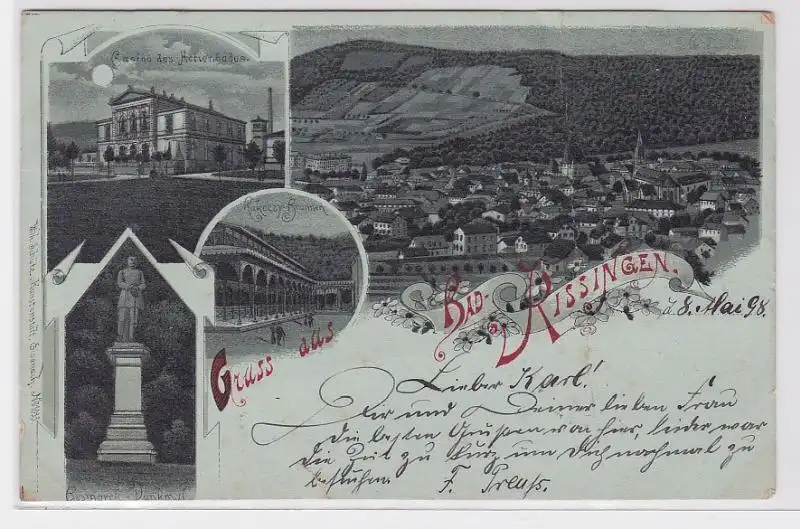 Casino des Actienbades.
Rakoczy-Brunnen
Gruss aus
BAD-KISSINGEN.
d. 8. Mai 98.
Lieber Karl!
Dir und Deiner lieben Frau
die besten Grüssen von hier, leider war
die Zeit zu kurz um Dich nochmal zu
besuchen F. Preuss.
Bismarck-Denkmal